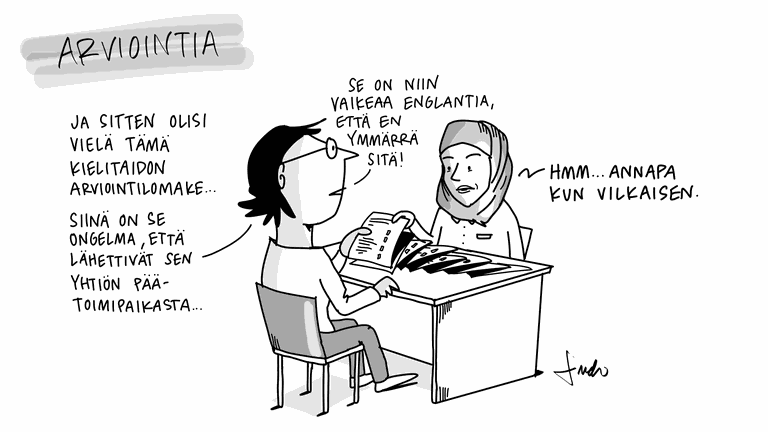 ARVIOINTIA
JA SITTEN OLISI
VIELÄ TÄMÄ
KIELITAIDON
ARVIOINTILOMAKE...
SIINÄ ON SE
ONGELMA, ETTÄ
LÄHETTIVÄT SEN
YHTIÖN PÄÄ-
TOIMIPAIKASTA...
SE ON NIIN
VAIKEAA ENGLANTIA,
ETTÄ EN
YMMÄRRÄ
SITÄ!
HMM... ANNAPA
KUN VILKAISEN.